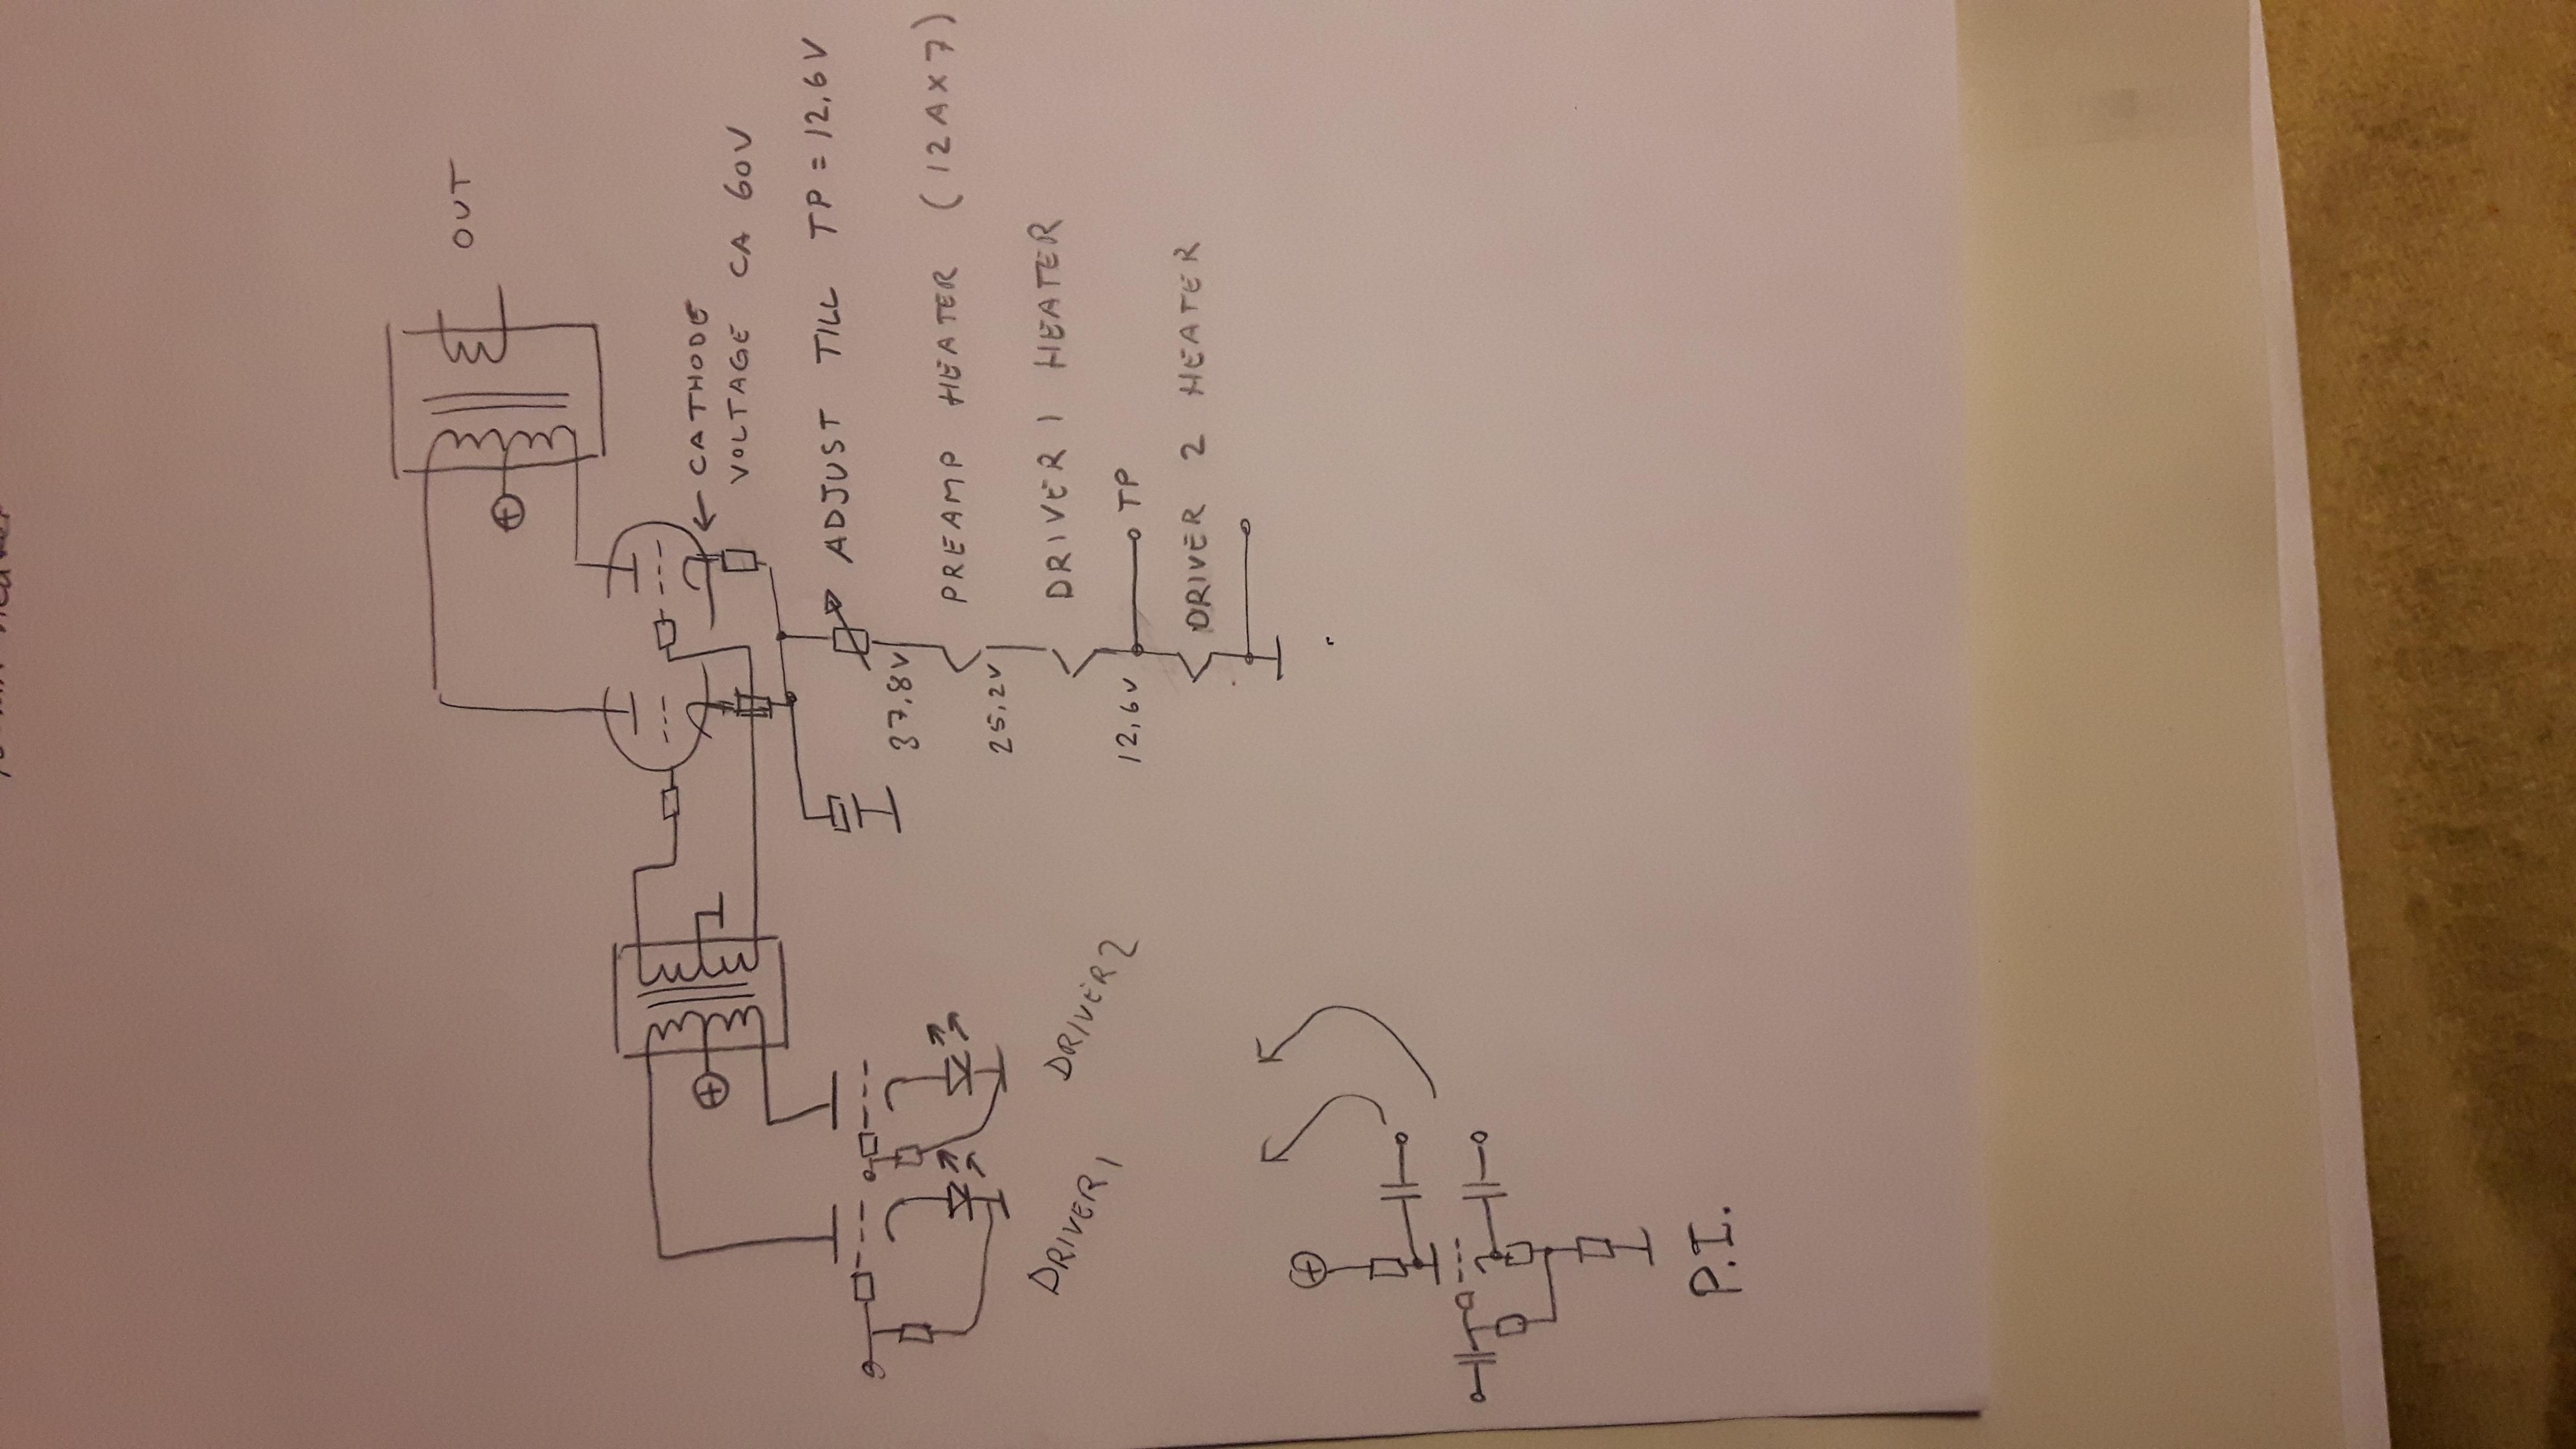 OUT
← CATHODE
VOLTAGE CA 60V
ADJUST TILL TP = 12,6V
37,8V
PREAMP HEATER (12AX7)
25,2V
DRIVER 1 HEATER
TP
12,6V
DRIVER 2 HEATER
DRIVER1
DRIVER2
P.I.